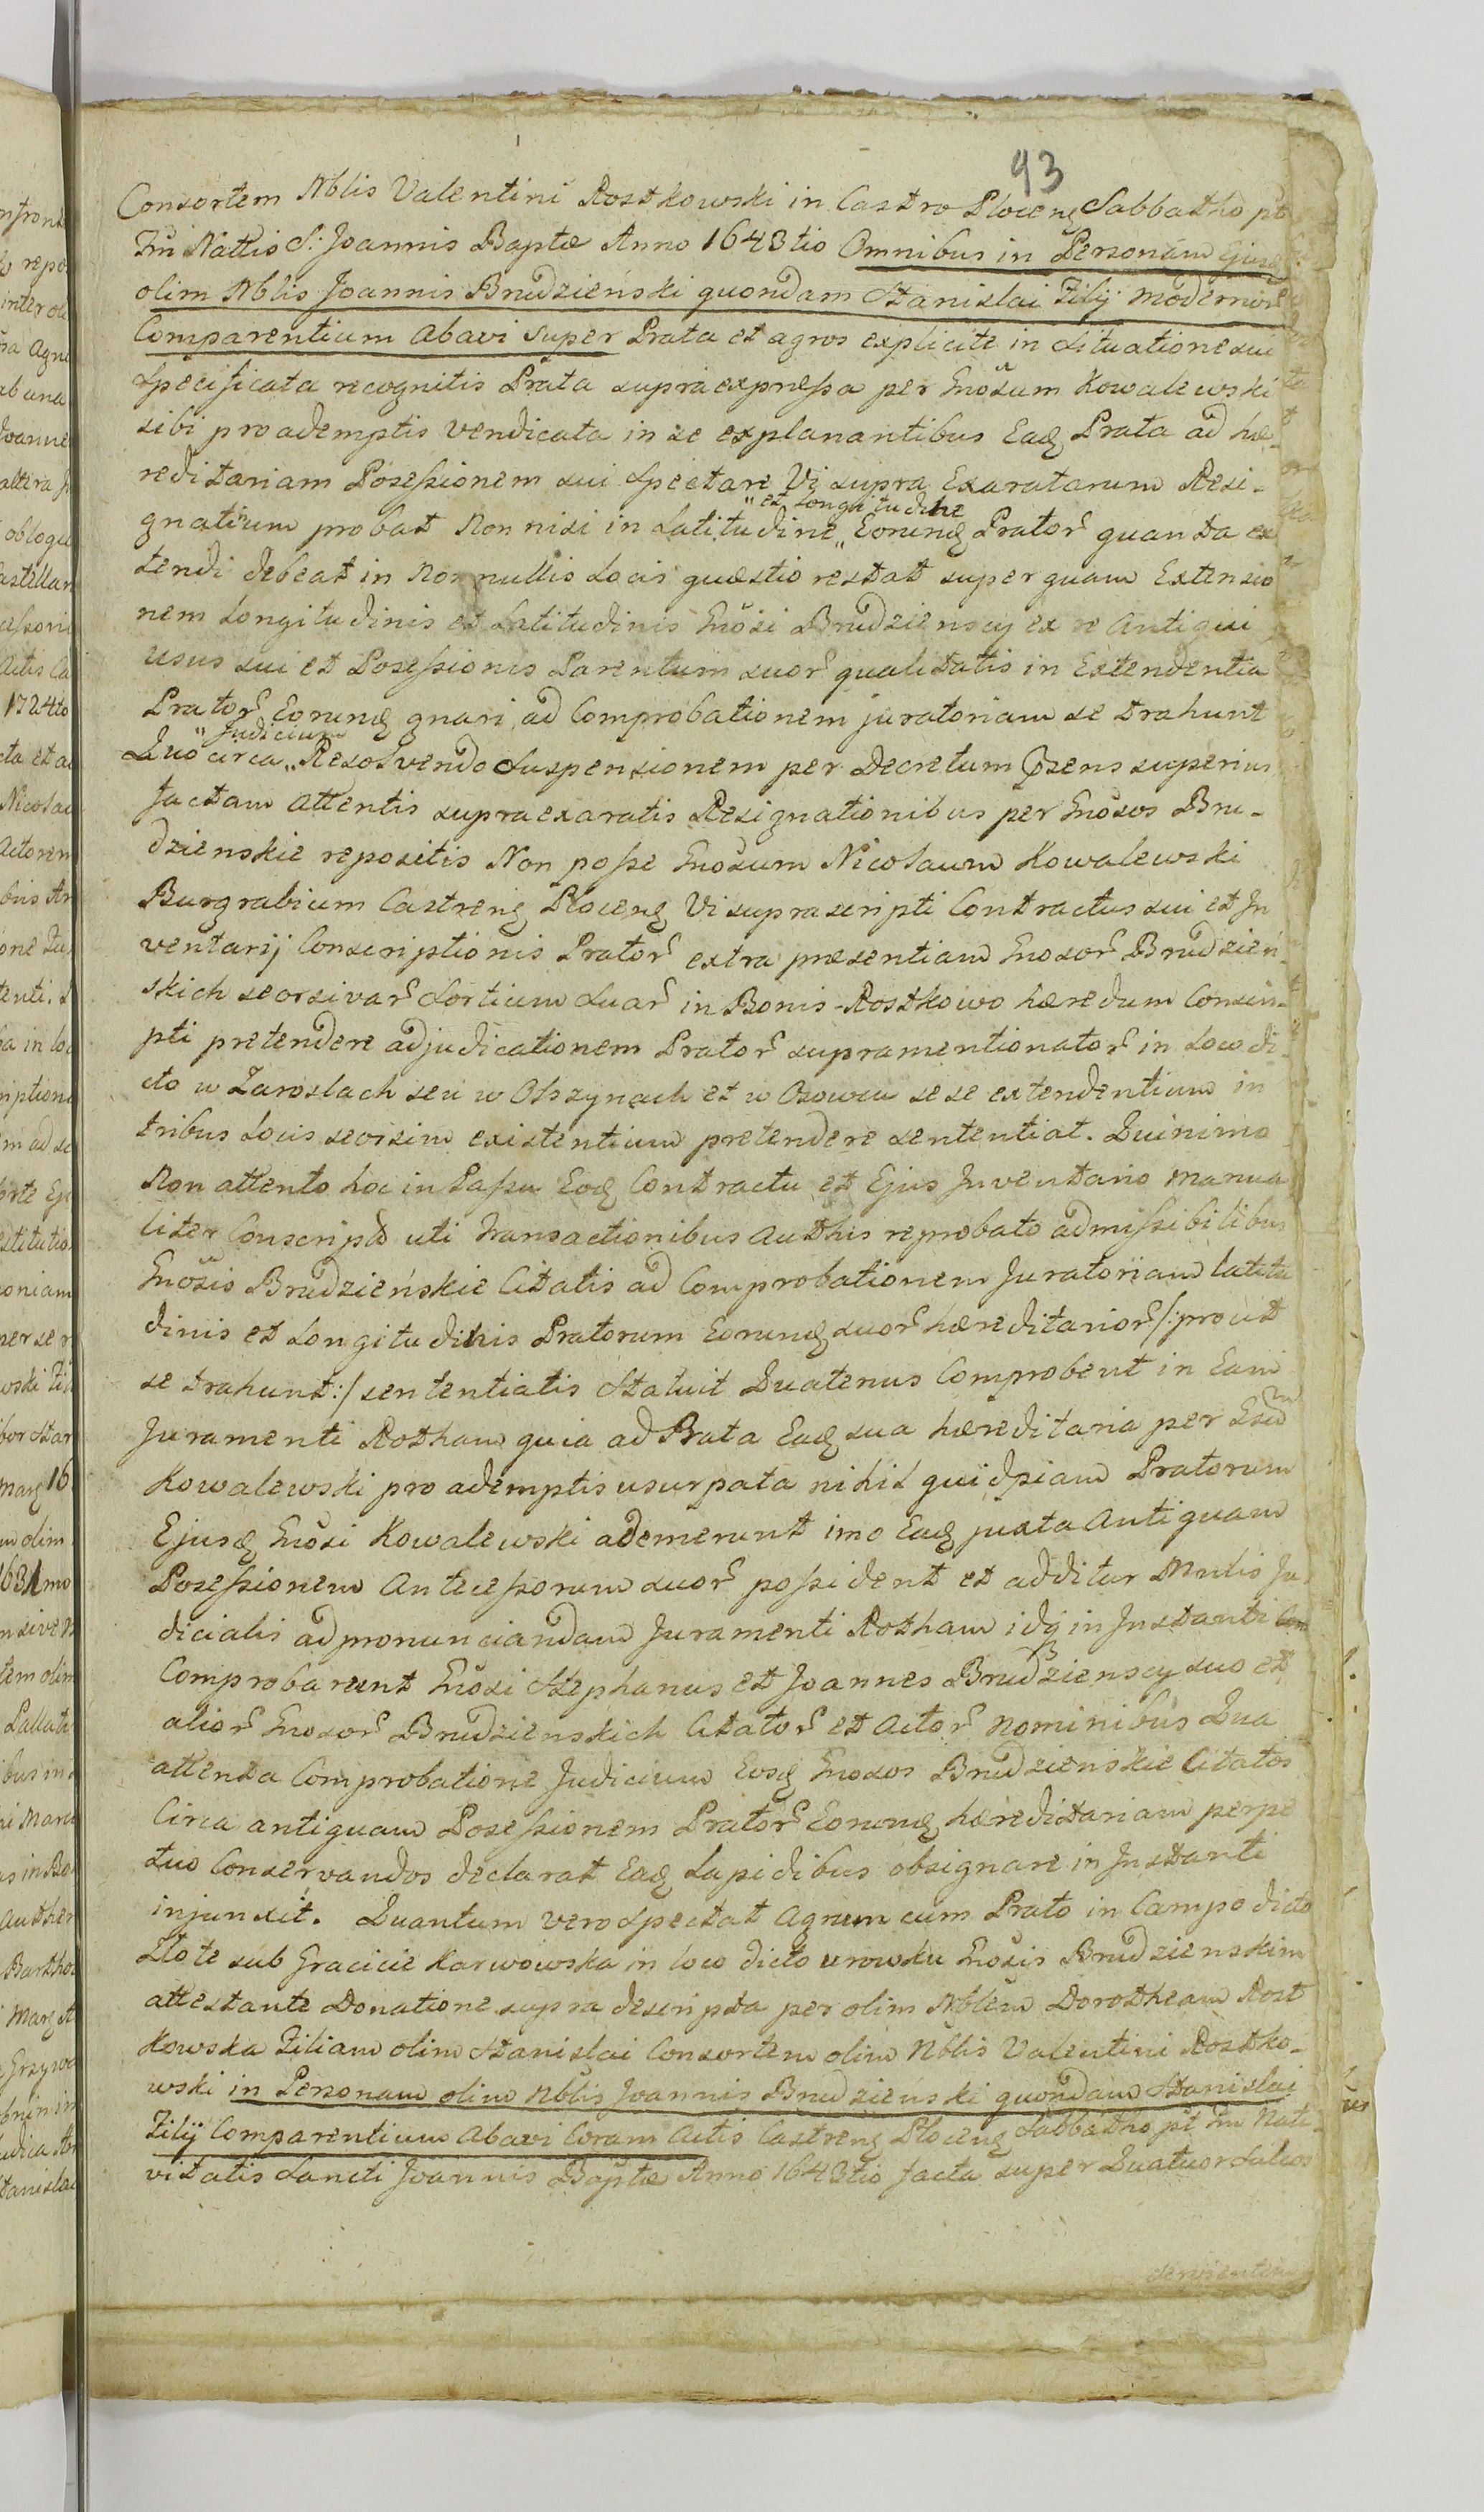 93
Consortem Nblis Valentini Rostkowski in Castro Plocenș Sabbatho pt
Fm Nattis S: Joannis Baptæ Anno 1643tio Omnibus in Personam Ejusd
olim Nblis Joannis Brudzieński quondam Stanislai Filij modernor
Comparentium Abavi super Prata et agros explicite in Situatione sui
Specificata recognitis Prata supra expressa per Gnosum Kowalewski
sibi pro ademptis vendicata in se explanantibus Eadę Prata ad hæ-
reditariam Posessionem sui Spectare Vi supra Exaratarum Resi-
„et Longitudine
gnatium probat Non nisi in Latitudine „ Eorundę Prator quanta ex
tendi debeat in Nonnullis Locis quæstio restat super quam Extensio
nem Longitudinis et Latitudinis Gnosi Brudzienscy ex re Antiqui
usus sui et Posessionis Parentum suor qualitatis in Extendentia
Prator Eorundę gnari ad Comprobationem juratoriam se trahunt
„Judicium
Quo circa „Resolvendo Suspensionem per Decretum Præsens superius
factam Attentis supra exaratis Resignationibus per Gnosos Bru-
dzienskie repositis Non posse Gnosum Nicolaum Kowalewski
Burgrabium Castrenș Plocenș Vi suprascripti Contractus sui et In
ventarij Conscriptionis Prator extra præsentiam Gnosor Brudzień-
skich seorsivar Sortium Suar in Bonis-Rostkowo hæredum Conscri-
pti pretendere adjudicationem Prator supramentionator in Loco di-
cto w Zaroslach seu w Olszynach et w Osowcu se se extendentium in
tribus Locis seorsim existentium pretendere sententiat. Quinimo
Non attento hoc in Passu Eodę Contractu et Ejus Inventario manua
liter Conscripto uti transactionibus Authis reprobato admissibilibus
Gnosis Brudzieńskie Citatis ad Comprobationem Juratoriam latitu
dinis et Longitudinis Pratorum Eorundę suor hæreditarior /: prout
se trahunt :/ sententiatis Statuit Quatenus Comprobent in Eam
Juramenti Rotham quia ad Prata Eadę sua hæreditaria per Gsum
Kowalewski pro ademptis usurpata nihil quidpiam Pratorum
Ejusdę Gnosi Kowalewski ademerunt imo Eadę juxta Antiquam
Posessionem Antecessorum suor possident et additur Mnlis Ju
dicialis ad pronunciandam Juramenti Rotham idq in Instanti
Comprobarunt Gnosi Stephanus et Joannes Brudzienscy suo et
alior Gnosor Brudzienskich Citator et Actor Nominibus Qua
attenta Comprobatione Judicium Eosdę Gnosos Brudzienskie Citatos
Circa antiquam Posessionem Prator Eorundę hæreditariam perpe
tuo Conservandos declarat Eadę Lapidibus obsignare in Instanti
injunxit. Quantum vero Spectat Agrum cum Prato in Campo dicto
Złote sub Gracicie Karwowska in loco dicto urowku Gnosis Brudzienskim
attestante Donatione supra descripta per olim Nblem Dorotheam Rost
kowska Filiam olim Stanislai Consortem olim Nblis Valentini Rostko-
wski in Personam olim Nblis Joannis Brudzienski quondam Stanislai
Filij Comparentium Abavi Coram Actis Castrenș Plocenș Sabbatho pt Fm Nati-
vitatis Sancti Joannis Baptæ Anno 1643tio facta super Quatuor Sulcos